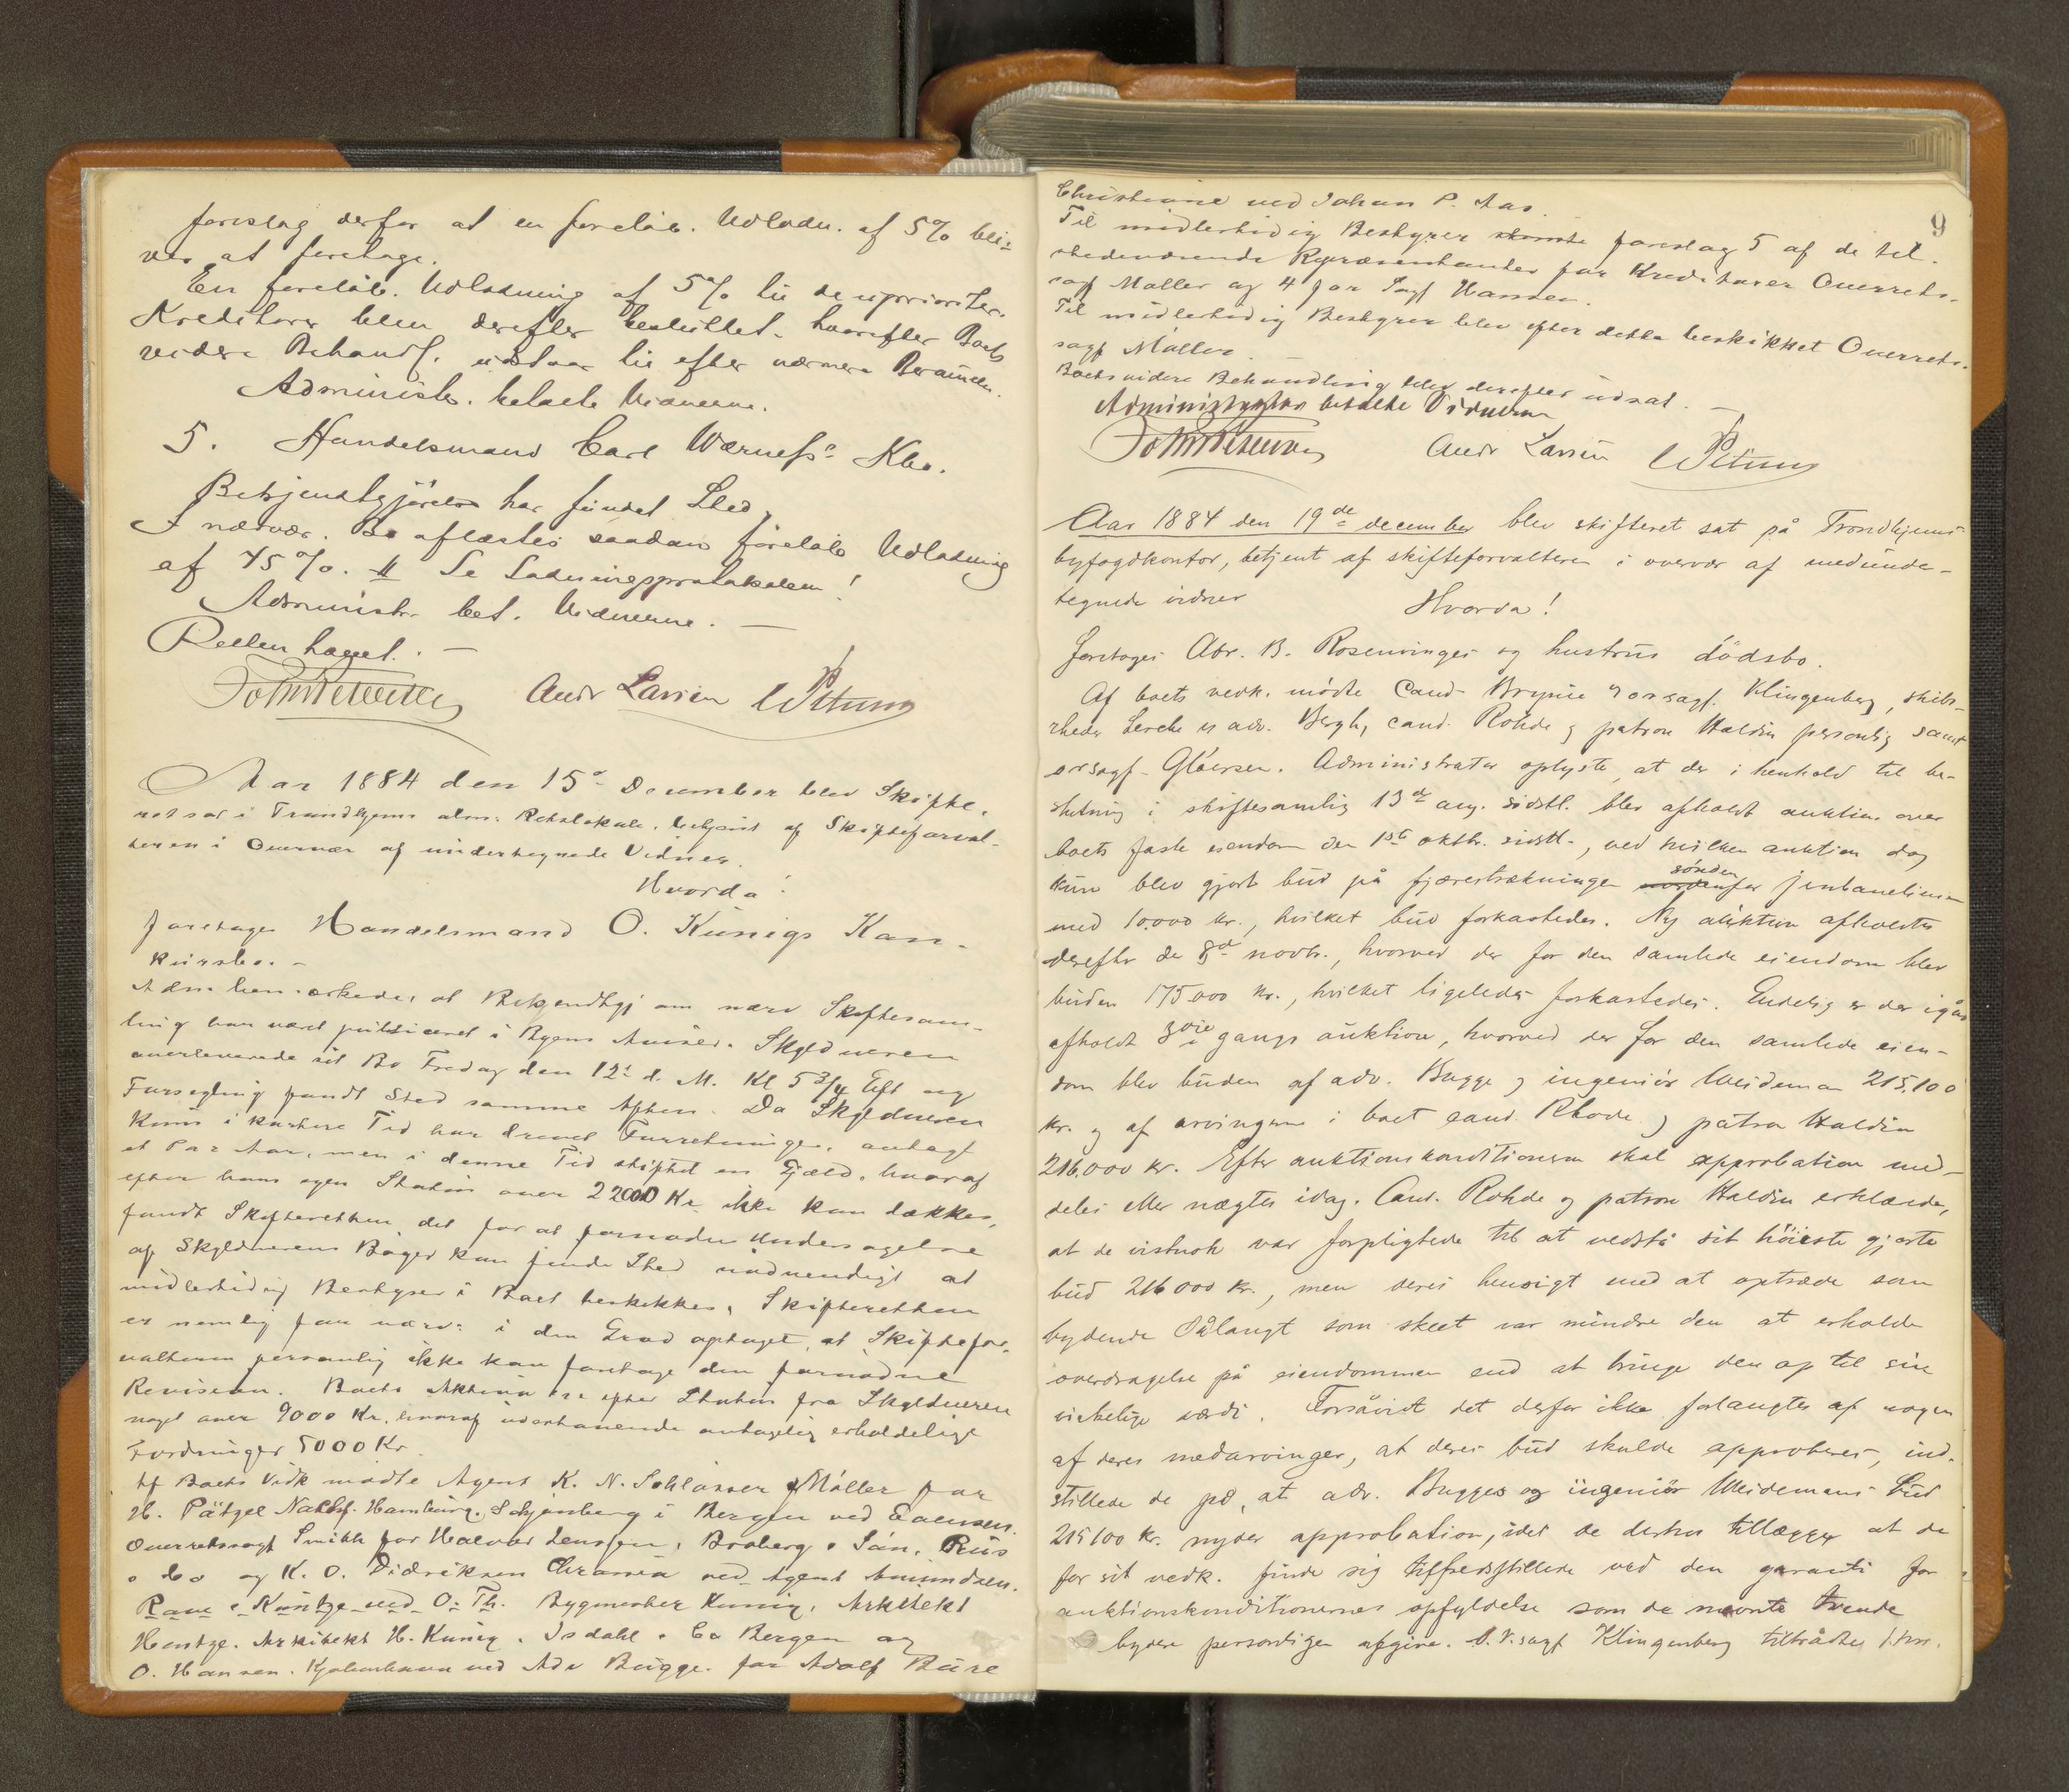 foreslog derfor at en foreløb. Udlodn. af 5% bli-
ver at foretage.
En foreløb. Udlodning af 5% til de upriorite.
Kreditorer blev derefter besluttet. hvorefter Boets
videre Behandl. udstaar til efter nærmere Beram.
Administr. betalte Vidnerne.
5. Handelsmand Carl Kbo.
Bekjendtgjørelse har fundet Sted.
I nærvær. Bo aflæstes saadan foreløb Udlodning
af 45%. Se Lodningsprotokollen!
Administr. bet. Vidnerne. —
Retten hævet. —
Andr Larsen
Aar 1884 den 15de December blev Skifte-
ret sat i Trondhjems alm. Retslokale, betjent af Skifteforval-
teren i Overvær af undertegnede Vidner.
Hvorda!
foretages Handelsmand O. Künigs Kon-
kursbo. -
Adm. bemærkede, at Bekjendtgj om nærv Skiftesam-
ling har været publiceret i Byens Aviser. Skyldneren
overleverede sit Bo Fredag den 12te d. M. Kl 5 3/4 Eft og
Forsegling fandt Sted samme Aften. Da Skyldneren
kun i kortere Tid har drevet Forretninger, antagl
et Par Aar, men i denne Tid stiftet en Gjæld, hvoraf
efter hans egen Status over 22000 Kr ikke kan dækkes,
fandt Skifteretten det for at fornøden Undersøgelse
af Skyldnerens Bøger kan finde Sted nødvendigt at
midlertidig Bestyrer i Boet beskikkes, Skifteretten
er nemlig for nærv: i den Grad optaget, at Skiftefor-
valteren personlig ikke kan foretage den fornødne
Revision. Boets Aktiva er efter Status fra Skyldneren
noget over 9000 Kr. hvoraf udestaaende antagelig erholdelige
Fordringer 5000 Kr.
Af Boets Vedk mødte Agent K. N. Schlosser Møller for
H. Pätzel Nachf. Hamburg. Schjenberg i Bergen ved
Overretssagf Smith for Halvor Jenssen, Broberg & Søn, Rus
& Co og K. O. Didriksen Chrania ved Agent Amundsen.
Rave & Küntze ved O. Th. Bygmester Künig, Arkitekt
Hentze. Arkitekt H. Künig. Isdahl & Co Bergen og
O. Hansen. Kjøbenhavn ved Adv Bugge. for Adolf Büre
9
Christiania ved Johan P. Aas.
Til midlertidig Bestyrer foreslog 5 af de til-
stedeværende Repræsentanter for Kreditorer Overrets-
sagf Møller og 4 for Sagf Hansen.
Til midlertidig Bestyrer blev efter dette beskikket Overrets-
sagf Møller. —
Boets videre Behandling blev derefter udsat. —
Administrator betalte Vidnerne
Andr Larsen
Aar 1884 den 19de december blev skifteret sat på Trondhjems
byfogdkontor, betjent af skifteforvalteren i overvær af medunder-
tegnede vidner
Hvorda!
Foretages Abr. B. Rosenvinges og hustrus dødsbo.
Af boets vedk. mødte Cand. Brynie og orsagf. Klingenberg, skibs-
rheder Lerche v adv. Bergh, cand. Rohde og patron Haldin personlig samt
orsagf. Gløersen. Administrator oplyste, at der i henhold til be-
slutning i skiftesamling 13de aug. sidstl. blev afholdt auktion over
boets faste eiendom den 1ste oktbr. sidstl., ved hvilken auktion dog
kun blev gjort bud på fjærestrækningen nordenfor sønden jernbanelinien
med 10.000 kr., hvilket bud forkastedes. Ny auktion afholdtes
derefter den 8de novbr., hvorved der for den samlede eiendom blev
buden 175.000 kr., hvilket ligeledes forkastedes. Endelig er der igår
afholdt 3die gangs auktion, hvorved der for den samlede eien-
dom blev buden af adv. Bugge og ingeniør Weideman 215,100
kr. og af arvingerne i boet cand. Rhode og patron Haldin
216.000 kr. Efter auktionskonditionerne skal approbation med-
deles eller nægtes idag. Cand. Rohde og patron Haldin erklærede,
at de vistnok var forpligtede til at vedstå sit høieste gjorte
bud 216000 kr., men deres hensigt med at optræde som
bydende Sålangt som skeet var mindre den at erholde
overdragelse på eiendommen end at bringe den op til sin
virkelige værdi. Forsåvidt det derfor ikke forlangtes af nogen
af deres medarvinger, at deres bud skulde approberes, ind-
stillede de på, at adv. Bugges og ingeniør Weidemans bud
215100 kr. nyder approbation, idet de derhos tillægger at de
for sit vedk. finde sig tilfredsstillede ved den garanti for
auktionskonditionernes opfyldelse som de nævnte tvende
bydere personligen afgive. O.r.sagf Klingenberg tiltrådtes